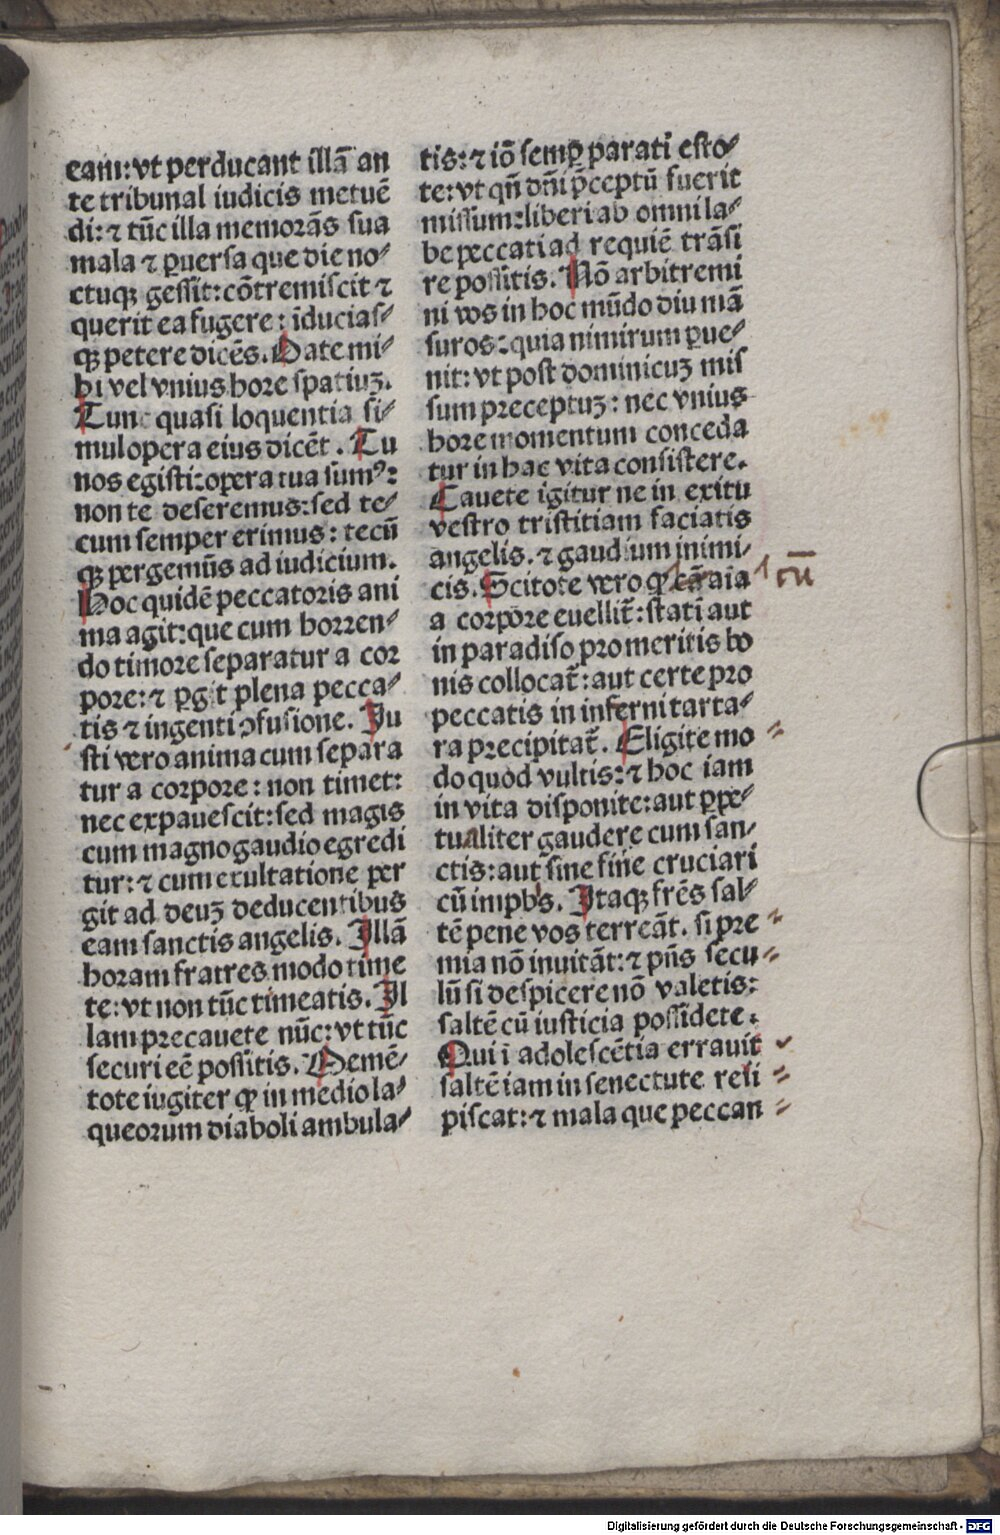 eam: vt perducant illā an
te tribunal iudicis metuē
di: ⁊ tūc illa memorās sua
mala ⁊ ꝑuersa que die no⸗
ctuqꝫ gessit: cōtremiscit ⁊
querit ea fugere: īducias⸗
qꝫ petere dicēs. Date mi⸗
hi vel vnius hore spatiuꝫ.
Tunc quasi loquentia si⸗
mul opera eius dicēt. Tu
nos egisti: opera tua sumꝰ:
non te deseremus: sed te⸗
cum semper erimus: tecū
qꝫ pergemꝰ ad iudicium.
Hoc quidē peccatoris ani
ma agit: que cum horren⸗
do timore separatur a cor
pore: ⁊ ꝑgit plena pecca⸗
tis ⁊ ingenti ↄfusione. Iu
sti vero anima cum separa
tur a corpore: non timet:
nec expauescit: sed magis
cum magno gaudio egredi
tur: ⁊ cum exultatione per
git ad deuꝫ deducentibus
eam sanctis angelis. Illā
horam fratres modo time
te: vt non tūc timeatis. Il
lam precauete nūc: vt tūc
securi eē possitis. Memē⸗
tote iugiter ꝙ in medio la⸗
queorum diaboli ambula⸗
tis: ⁊ iō semꝑ parati esto⸗
te: vt qn̄ dn̄i p̄ceptū fuerit
missum: liberi ab omni la⸗
be peccati ad requiē trāsi
re possitis. Nō arbitremi
ni vos in hoc mūdo diu mā
suros: quia nimirum ꝑue⸗
nit: vt post dominicuꝫ mis
sum preceptuꝫ: nec vnius
hore momentum conceda
tur in hac vita consistere.
Cauete igitur ne in exitu
vestro tristitiam faciatis
angelis. ⁊ gaudium inimi⸗
cis. Scitote vero ꝙ cā aīa
cū
a corpore euellit̄: stati aut
in paradiso pro meritis bo
nis collocat̄: aut certe pro
peccatis in inferni tarta⸗
ra precipitat̄. Eligite mo
do quod vultis: ⁊ hoc iam
in vita disponite: aut ꝑpe⸗
tualiter gaudere cum san⸗
ctis: aut sine fine cruciari
cū impb's. Itaqꝫ frēs sal⸗
tē pene vos terreāt. si pre
mia nō inuitāt: ⁊ pn̄s secu
lū si despicere nō valetis:
saltē cū iusticia possidete.
Qui ī adolescētia errauit
saltē iam in senectute resi
piscat: ⁊ mala que peccan
Digitalisierung gefördert durch die Deutsche Forschungsgemeinschaft - DFG